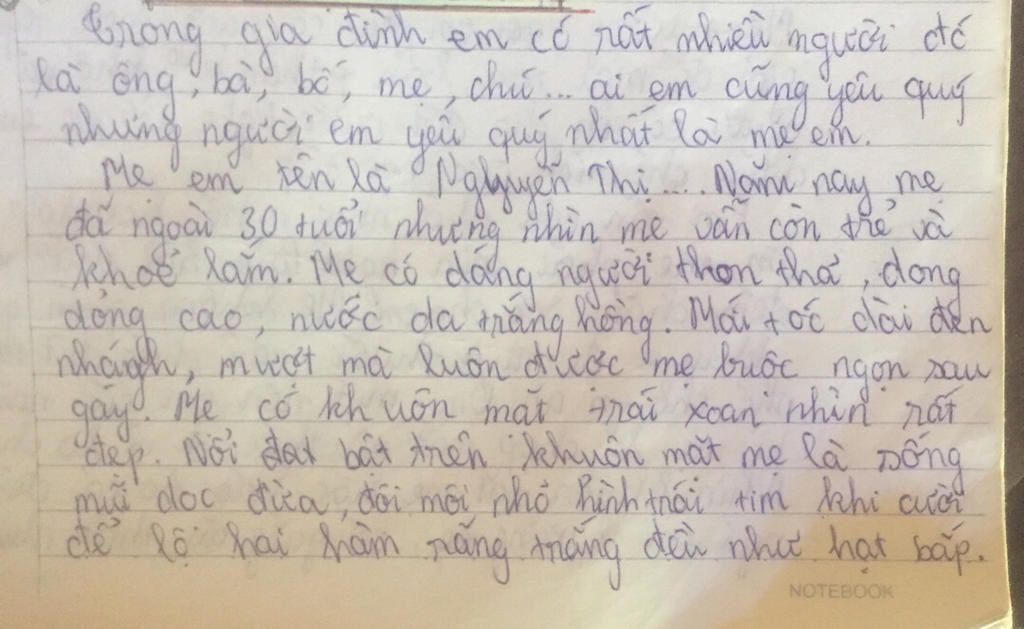 Trong gia đình em có rất nhiều người đó
là ông, bà, bố, mẹ, chú... ai em cũng yêu quý
nhưng người em yêu quý nhất là mẹ em.
Mẹ em tên là Nguyễn Thị.... Năm nay mẹ
đã ngoài 30 tuổi nhưng nhìn mẹ vẫn còn trẻ và
khoẻ lắm. Mẹ có dáng người thon thả, dong
dỏng cao, nước da trắng hồng. Mái tóc dài đen
nhánh, mượt mà luôn được mẹ buộc ngọn sau
gáy. Mẹ có khuôn mặt trái xoan nhìn rất
đẹp. Nổi bật trên khuôn mặt mẹ là sống
mũi dọc dừa, đôi môi nhỏ hình trái tim khi cười
để lộ hai hàm răng trắng đều như hạt bắp.
NOTEBOOK